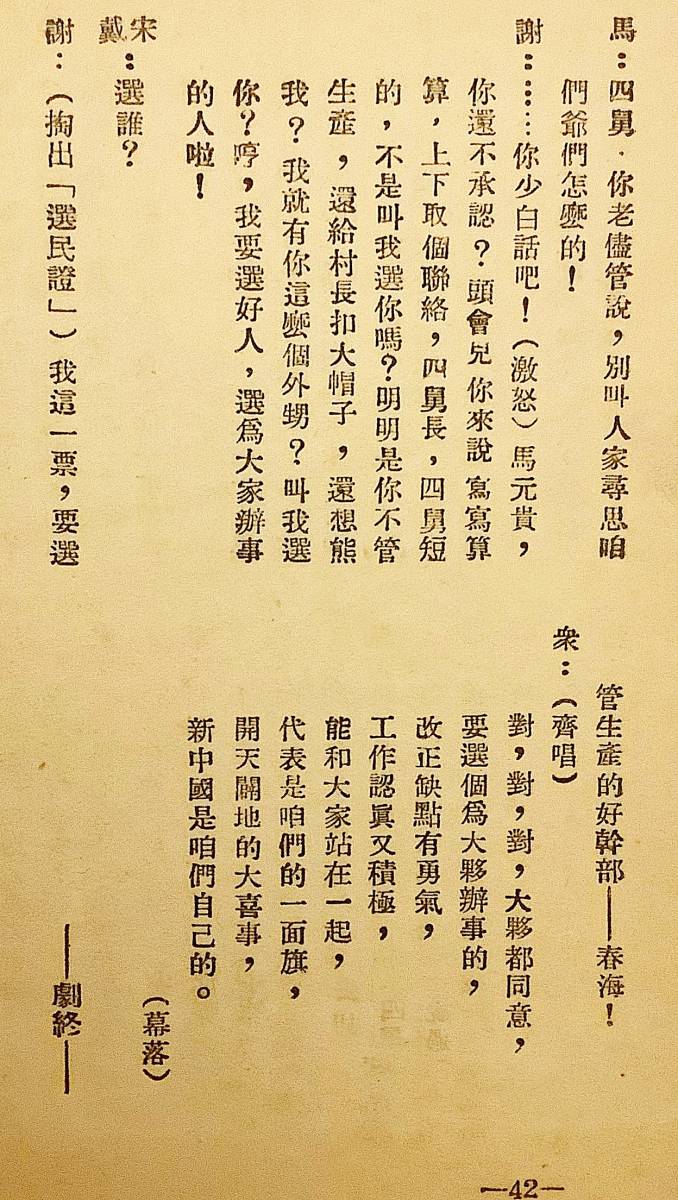 馬：四舅．你老儘管說，別叫人家尋思咱
們爺們怎麼的！
謝：……你少白話吧！（激怒）馬元貴，
你還不承認？頭會兒你來說寫寫算
算，上下取個聯絡，四舅長，四舅短
的，不是叫我選你嗎？明明是你不管
生產，還給村長扣大帽子，還想熊
我？我就有你這麼個外甥？叫我選
你？哼，我要選好人，選爲大家辦事
的人啦！
宋
戴：選誰？
謝：（掏出「選民證」）我這一票，要選
管生產的好幹部——春海！
衆：（齊唱）
對，對，對，大夥都同意，
要選個爲大夥辦事的，
改正缺點有勇氣，
工作認眞又積極，
能和大家站在一起，
代表是咱們的一面旗，
開天闢地的大喜事，
新中國是咱們自己的。
（幕落）
——劇終——
—42—